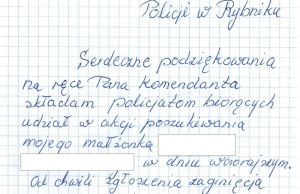 Policji w Rybniku
Serdeczne podziękowania
na ręce Pana Komendanta
składam policjatom biorących
udział w akcji poszukiwania
mojego małżonka
w dniu wczorajszym.
Od chwili zgłoszenia zaginięcia